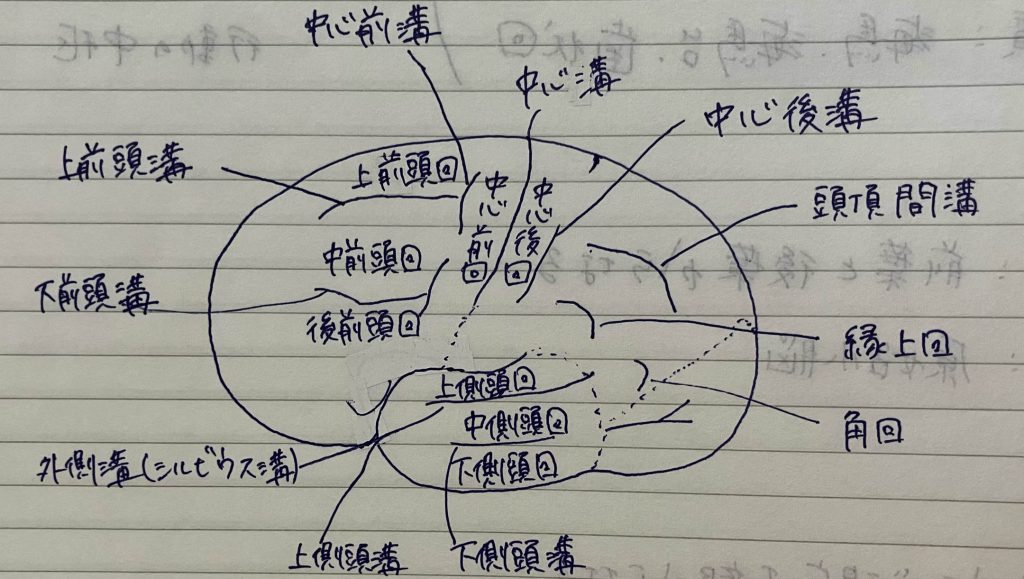 中心前溝
中心溝
中心後溝
上前頭溝
上前頭回
中心前回
中心後回
頭頂間溝
中前頭回
下前頭溝
後前頭回
縁上回
上側頭回
角回
中側頭回
外側溝(シルビウス溝)
下側頭回
上側頭溝
下側頭溝